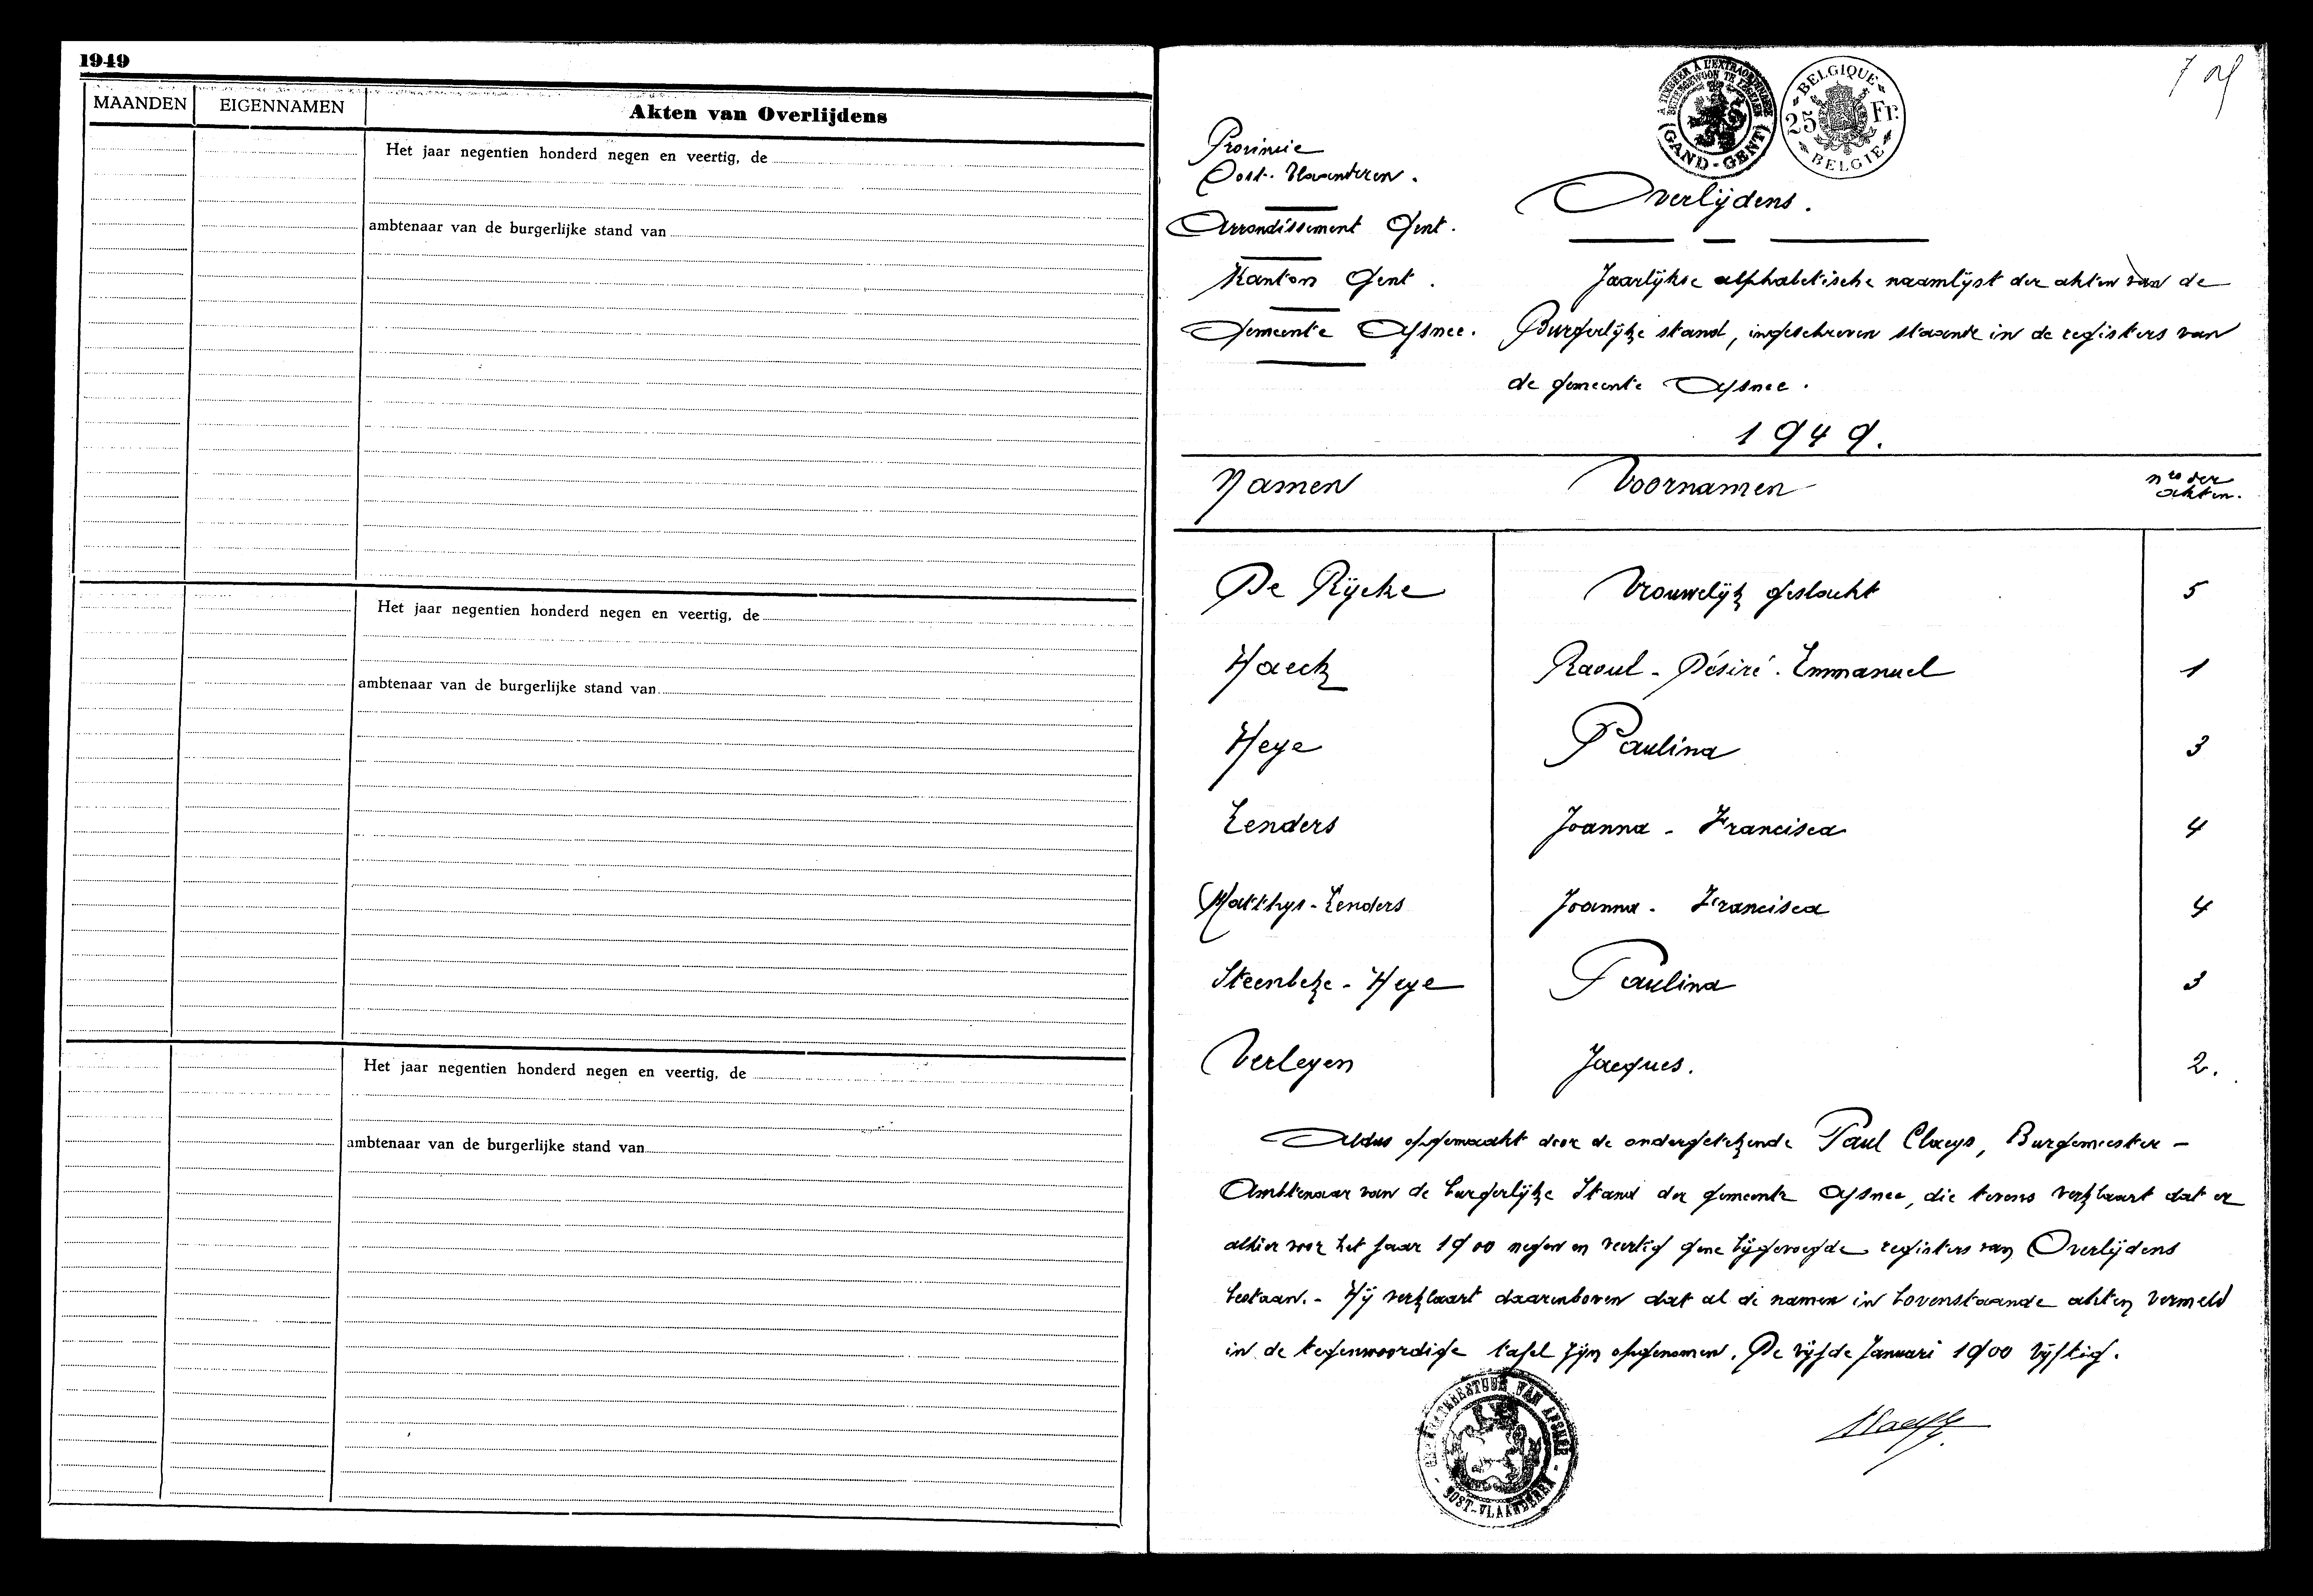 1949
MAANDEN EIGENNAMEN Akten van Overlijdens
Het jaar negentien honderd negen en veertig, de
ambtenaar van de burgerlijke stand van
Het jaar negentien honderd negen en veertig, de
ambtenaar van de burgerlijke stand van
Het jaar negentien honderd negen en veertig, de
ambtenaar van de burgerlijke stand van
GAND-GENT
BELGIQUE
25 Fr.
BELGIE
Provincie
Oost-Vlaanderen.
Arrondissement Gent.
Kanton Gent.
Gemeente Afsnee.
Overlijdens.
Jaarlijkse alphabetische naamlijst der akten van de
Burgerlijke stand, ingeschreven staande in de registers van
de gemeente Afsnee.
1949.
Namen Voornamen nos der akten.
De Rijcke Vrouwelijk geslacht 5
Haeck Raoul-Désiré-Emmanuel 1
Heye Paulina 3
Lenders Joanna-Francisca 4
Matthys-Lenders Joanna-Francisca 4
Steenbeke-Heye Paulina 3
Verleyen Jacques. 2.
Aldus opgemaakt door de ondergetekende Paul Claeys, Burgemeester-
Ambtenaar van de burgerlijke Stand der gemeente Afsnee, die tevens verklaart dat er
alhier voor het jaar 1900 negen en veertig gene bijgevoegde registers van Overlijdens
bestaan.- Hij verklaart daarenboven dat al de namen in bovenstaande akten vermeld
in de tegenwoordige tafel zijn opgenomen. De vijfde Januari 1900 vijftig.
GEMEENTEBESTUUR VAN AFSNEE
OOST-VLAANDEREN